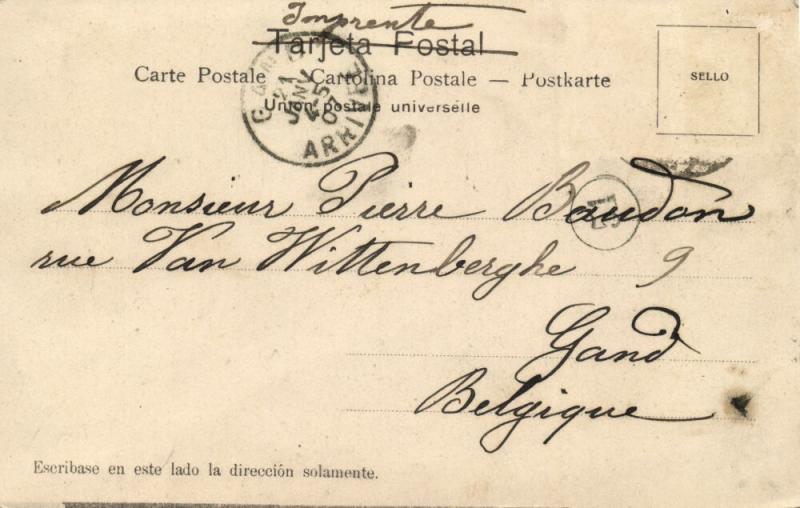 Imprente
Tarjeta Postal
Carte Postale — Cartolina Postale — Postkarte
Union postale universelle
SELLO
21
ARRIVEE
Monsieur Pierre Baudon
rue Van Wittenberghe 9
Gand
Belgique
Escribase en este lado la dirección solamente.